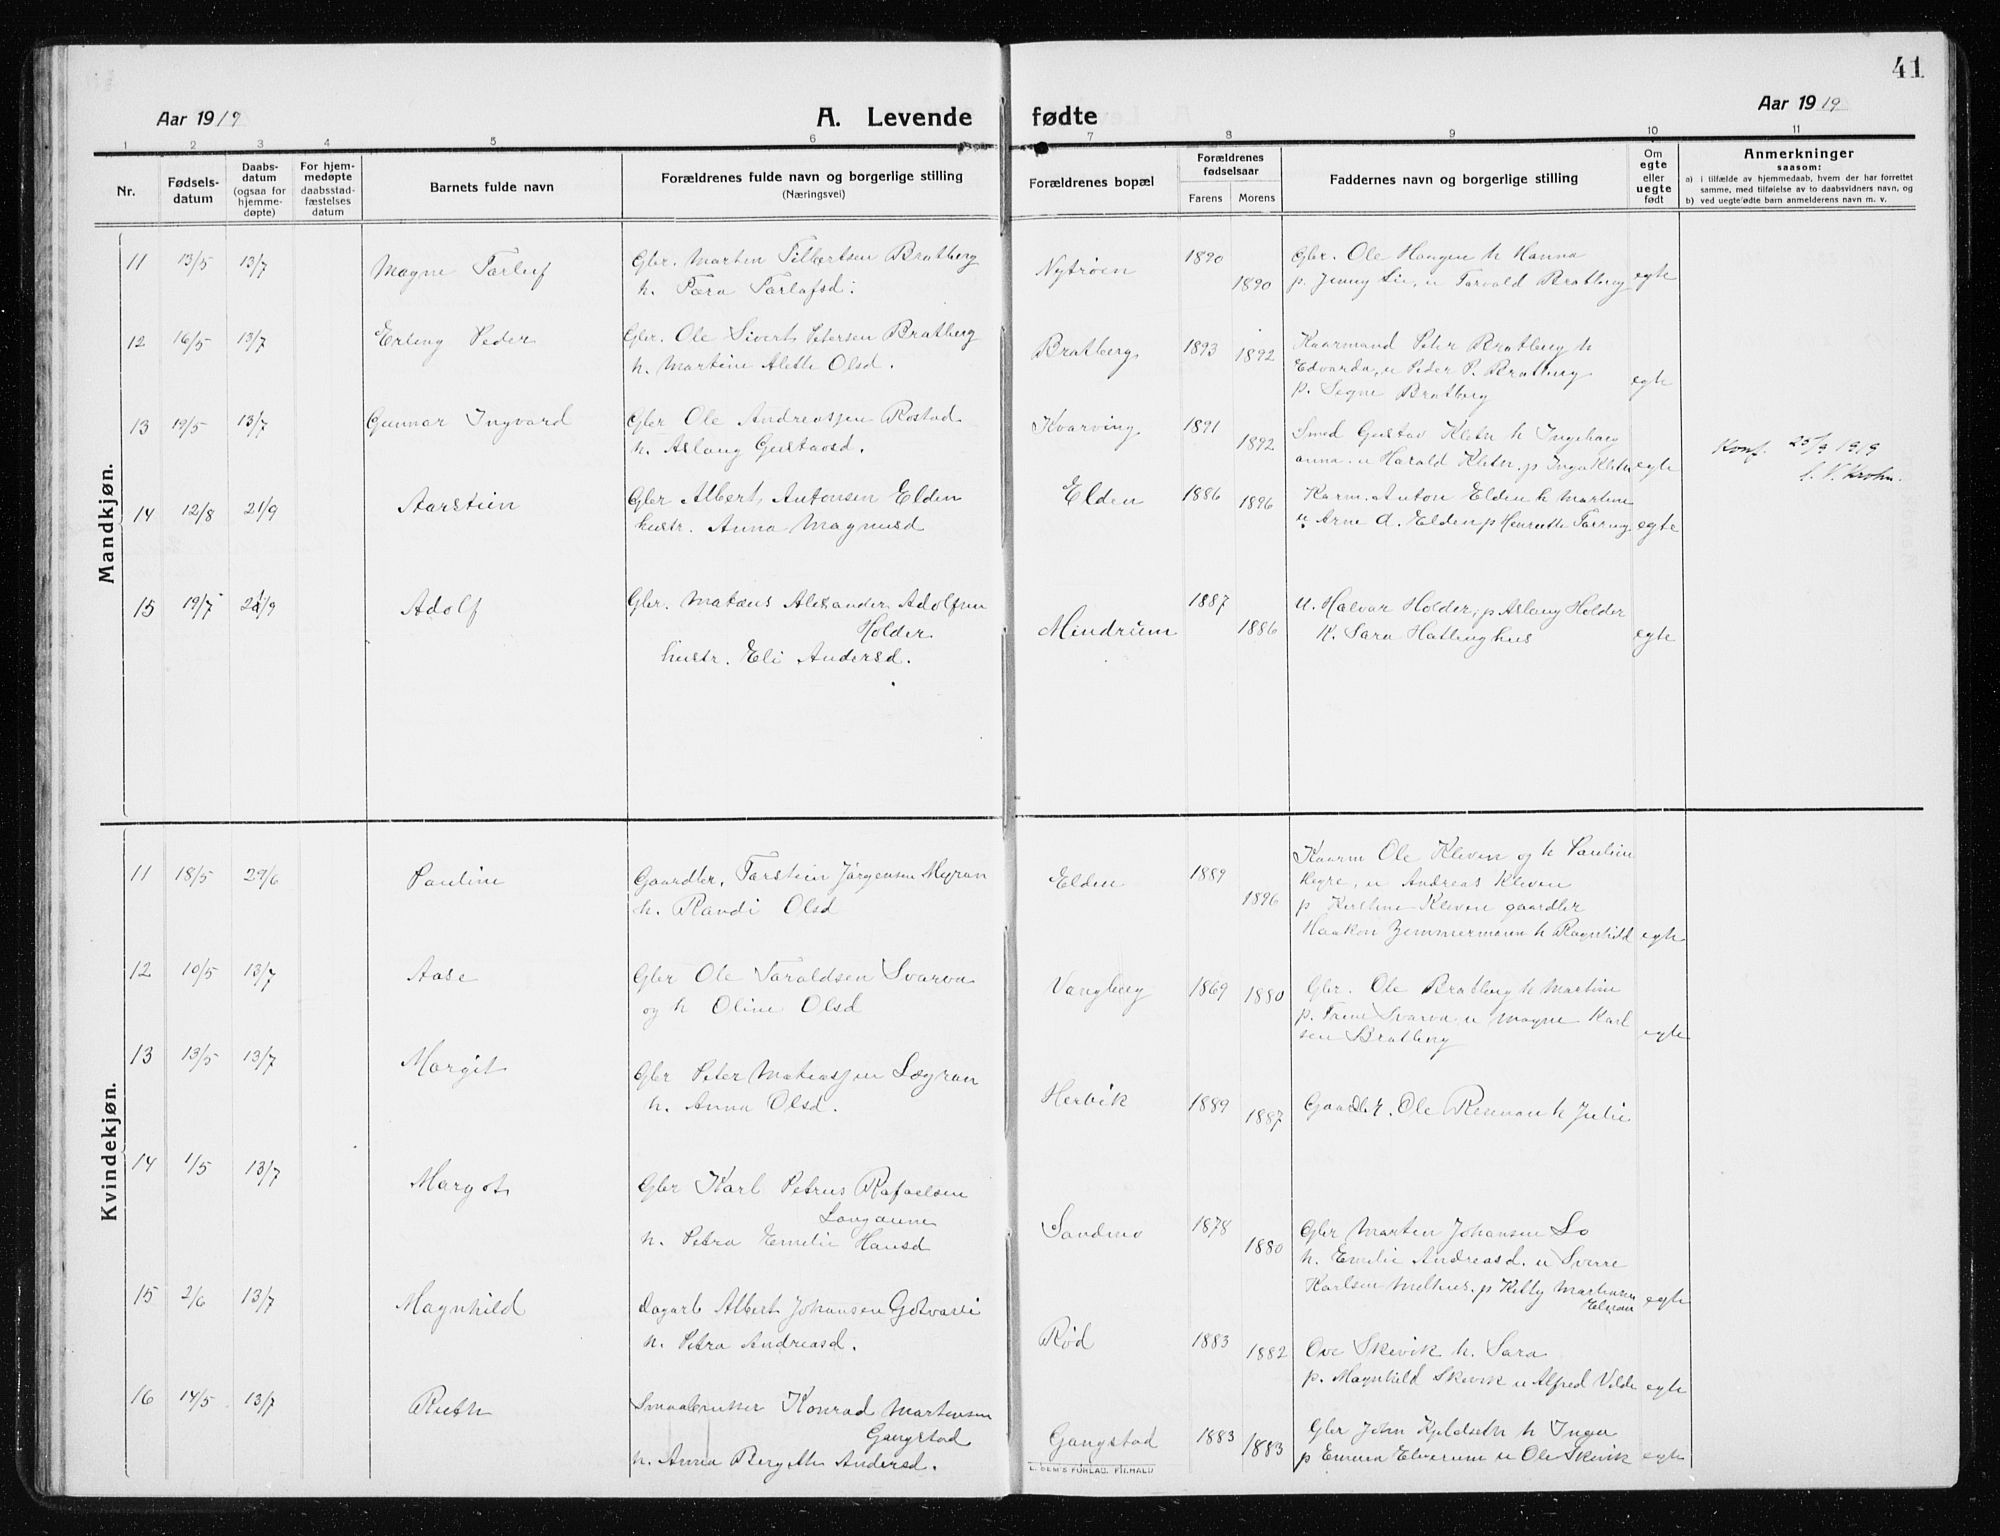 41
Aar 1919
A. Levende fødte
Aar 1919
1 2 3 4 5 6 7 8 9 10 11
Nr.
Fødsels-
datum
Daabs-
datum
(ogsaa for
hjemme-
døpte)
For hjem-
medøpte
daabsstad-
fæstelses
datum
Barnets fulde navn
Forældrenes fulde navn og borgerlige stilling
(Næringsvei)
Forældrenes bopæl
Forældrenes
fødselsaar
Farens Morens
Faddernes navn og borgerlige stilling
Om
egte
eller
uegte
født
Anmerkninger
saasom:
a) i tilfælde av hjemmedaab, hvem der har forrettet
samme, med tilføielse av to daabsvidners navn, og
b) ved uegte fødte barn anmelderens navn m. v.
Mandkjøn.
11 13/5 13/7 Magne Torleif
Gbr. Martin Tilbertsen Bratberg
h. Thora Torlafsd.
Nytrøen 1890 1890
Gbr. Ole Haugen h Hanna
p. Jenny Lie, u Torvald Bratberg egte
12 16/5 13/7 Erling Peder
Gbr. Ole Sivert Petersen Bratberg
h. Martine Alette Olsd.
Bratberg 1893 1892
Kaarmand Peter Bratberg h
Edvarda, u Peder P. Bratberg
p. Signe Bratberg egte
13 19/5 13/7 Gunnar Ingvard
Gbr Ole Andreassen Rostad
h. Aslaug Gustavsd.
Kvarving 1891 1892
Smed Gustav Kletn h Ingeborg
anna. u Harald Kletn. p Inga Kletn egte
Konf. 25/9 1919
14 12/8 21/9 Aarstein
Gbr Albert Antonsen Elden
hustr. Anna Magnusd
Elden 1886 1896
Karm. Anton Elden h Martine
u Arne A. Elden p Henriette egte
15 19/7 21/9 Adolf
Gbr. Matæus Alexander Adolfsen
Holder
hustr. Eli Andersd.
Mindrum 1887 1886
U. Halvar Holder, p Aslaug Holder
K. Sara Hallinghus egte
Kvindekjøn.
11 18/5 29/6 Pauline
Gaardbr. Torstein Jørgensen Myran
h. Randi Olsd
Elden 1889 1896
Kaarm Ole Kleven og h Pauline
u Andreas Kleven
p Kirstine Kleven gaardbr
Haakon Zimmermann h Ragnhild egte
12 10/5 13/7 Aase
Gbr Ole Toraldsen Svarva
og h Oline Olsd
Vangberg 1869 1880
Gbr. Ole Bratberg h Martine
p. Svarva u Magne Karl
sen Bratberg egte
13 13/5 13/7 Margit
Gbr Peter Mathiassen Lægran
h. Anna Olsd.
Hervik 1889 1887
Gaardbr. Ole Rennan h Julie
14 1/5 13/7 Margot
Gbr Karl Petrus Rafaelsen
Langaune
h. Petra Emelie Hansd
Sandmo 1878 1880
Gbr Martin Johansen Lo
h. Emelie Andreasd. u Sverre
Karlsen Melhus. p Kitty Martinsen
egte
15 2/6 13/7 Magnhild
Dagarb Albert Johansen Gotvasli
h. Petra Andreasd.
Rød 1883 1882
Ove Skevik h. Sara
p. Magnhild Skevik u Alfred Vilde egte
16 14/5 13/7 Ruth
Smaabruker Konrad Martinsen
Gangstad
h. Anna Bergith Andersd.
Gangstad 1883 1883
Gbr John Kjeldseth h Inga
p Emma Elverum u Ole Skevik egte